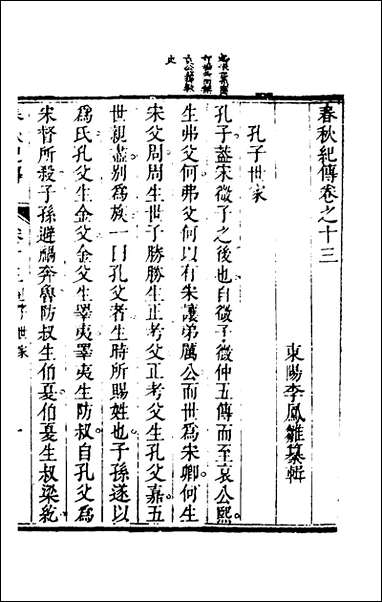 春秋紀傳卷之十三
東陽李鳳雛纂輯
孔子世家
孔子蓋宋微子之後也自微子微仲五傳而至哀公熙
生弗父何弗父何以有宋讓弟厲公而世為宋卿何生
宋父周周生世子勝勝生正考父正考父生孔父嘉五
世親盡别為族一曰孔父者生時所賜姓也子孫遂以
為氏孔父生金父金父生睪夷睪夷生防叔自孔父為
宋督所殺子孫避禍奔魯防叔生伯夏伯夏生叔梁紇
春秋紀傳
卷十三 孔子世家
一